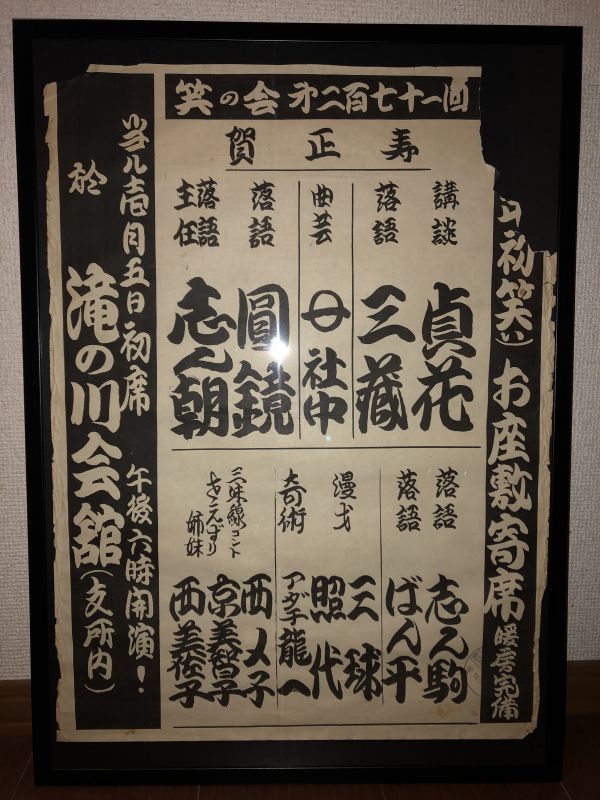 笑の会 才二百七十一回
賀正寿
初笑い) お座敷寄席 暖房完備
講談 貞花
落語 三蔵
曲芸 ㊀社中
落語 圓鏡
落語 主任 志ん朝
落語 志ん駒
落語 ばん平
漫才 三球 照代
奇術 アダチ龍一
三味線コント さえずり姉妹
西〆子
京美智子
西美佐子
当ル壱月五日初席 午後六時開演!
於 滝の川会館(支所内)